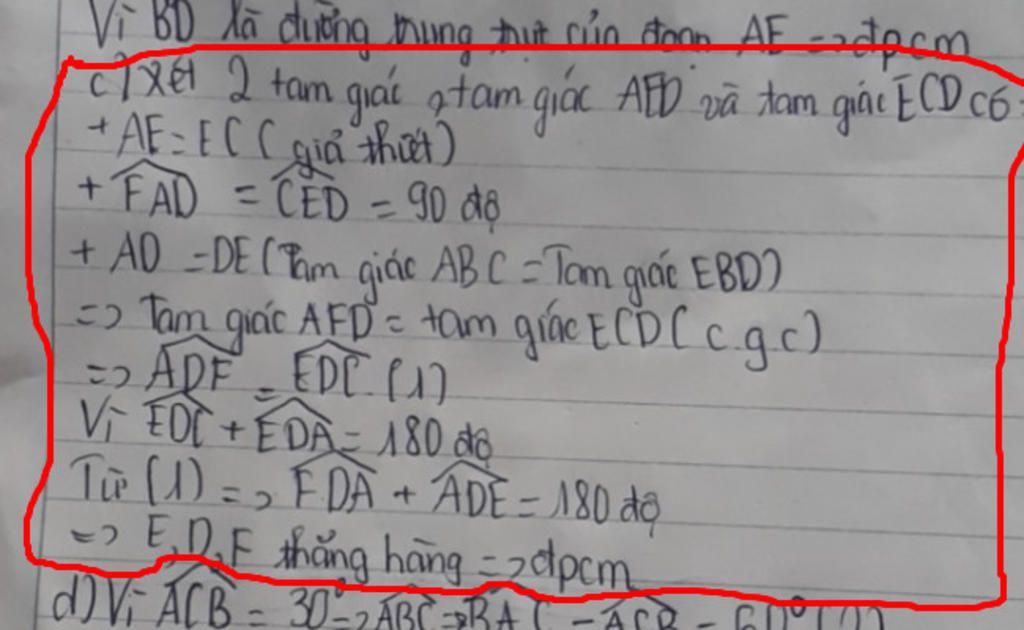 Vì BD là đường trung trực của đoạn AE => đpcm
c) Xét 2 tam giác, tam giác AFD và tam giác ECD có:
+ AF = EC (giả thiết)
+ FAD = CED = 90 độ
+ AD = DE (Tam giác ABC = Tam giác EBD)
=> Tam giác AFD = tam giác ECD (c.g.c)
=> ADF = EDC (1)
Vì EDC + EDA = 180 độ
Từ (1) => FDA + ADE = 180 độ
=> E, D, F thẳng hàng => đpcm
d) Vì ACB = 30° => ABC = BAC - ACB = 60° (1)